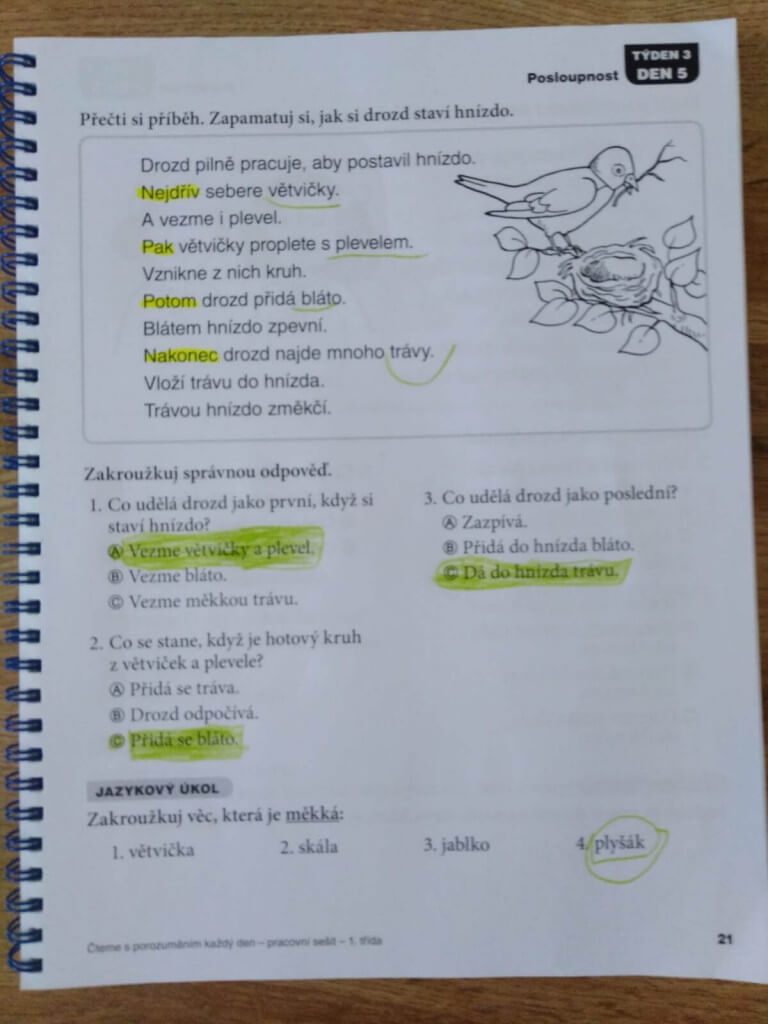 Posloupnost
TÝDEN 3
DEN 5
Přečti si příběh. Zapamatuj si, jak si drozd staví hnízdo.
Drozd pilně pracuje, aby postavil hnízdo.
Nejdřív sebere větvičky.
A vezme i plevel.
Pak větvičky proplete s plevelem.
Vznikne z nich kruh.
Potom drozd přidá bláto.
Blátem hnízdo zpevní.
Nakonec drozd najde mnoho trávy.
Vloží trávu do hnízda.
Trávou hnízdo změkčí.
Zakroužkuj správnou odpověď.
1. Co udělá drozd jako první, když si
staví hnízdo?
Ⓐ Vezme větvičky a plevel.
Ⓑ Vezme bláto.
Ⓒ Vezme měkkou trávu.
2. Co se stane, když je hotový kruh
z větviček a plevele?
Ⓐ Přidá se tráva.
Ⓑ Drozd odpočívá.
Ⓒ Přidá se bláto.
3. Co udělá drozd jako poslední?
Ⓐ Zazpívá.
Ⓑ Přidá do hnízda bláto.
Ⓒ Dá do hnízda trávu.
JAZYKOVÝ ÚKOL
Zakroužkuj věc, která je měkká:
1. větvička 2. skála 3. jablko 4. plyšák
Čteme s porozuměním každý den – pracovní sešit – 1. třída
21